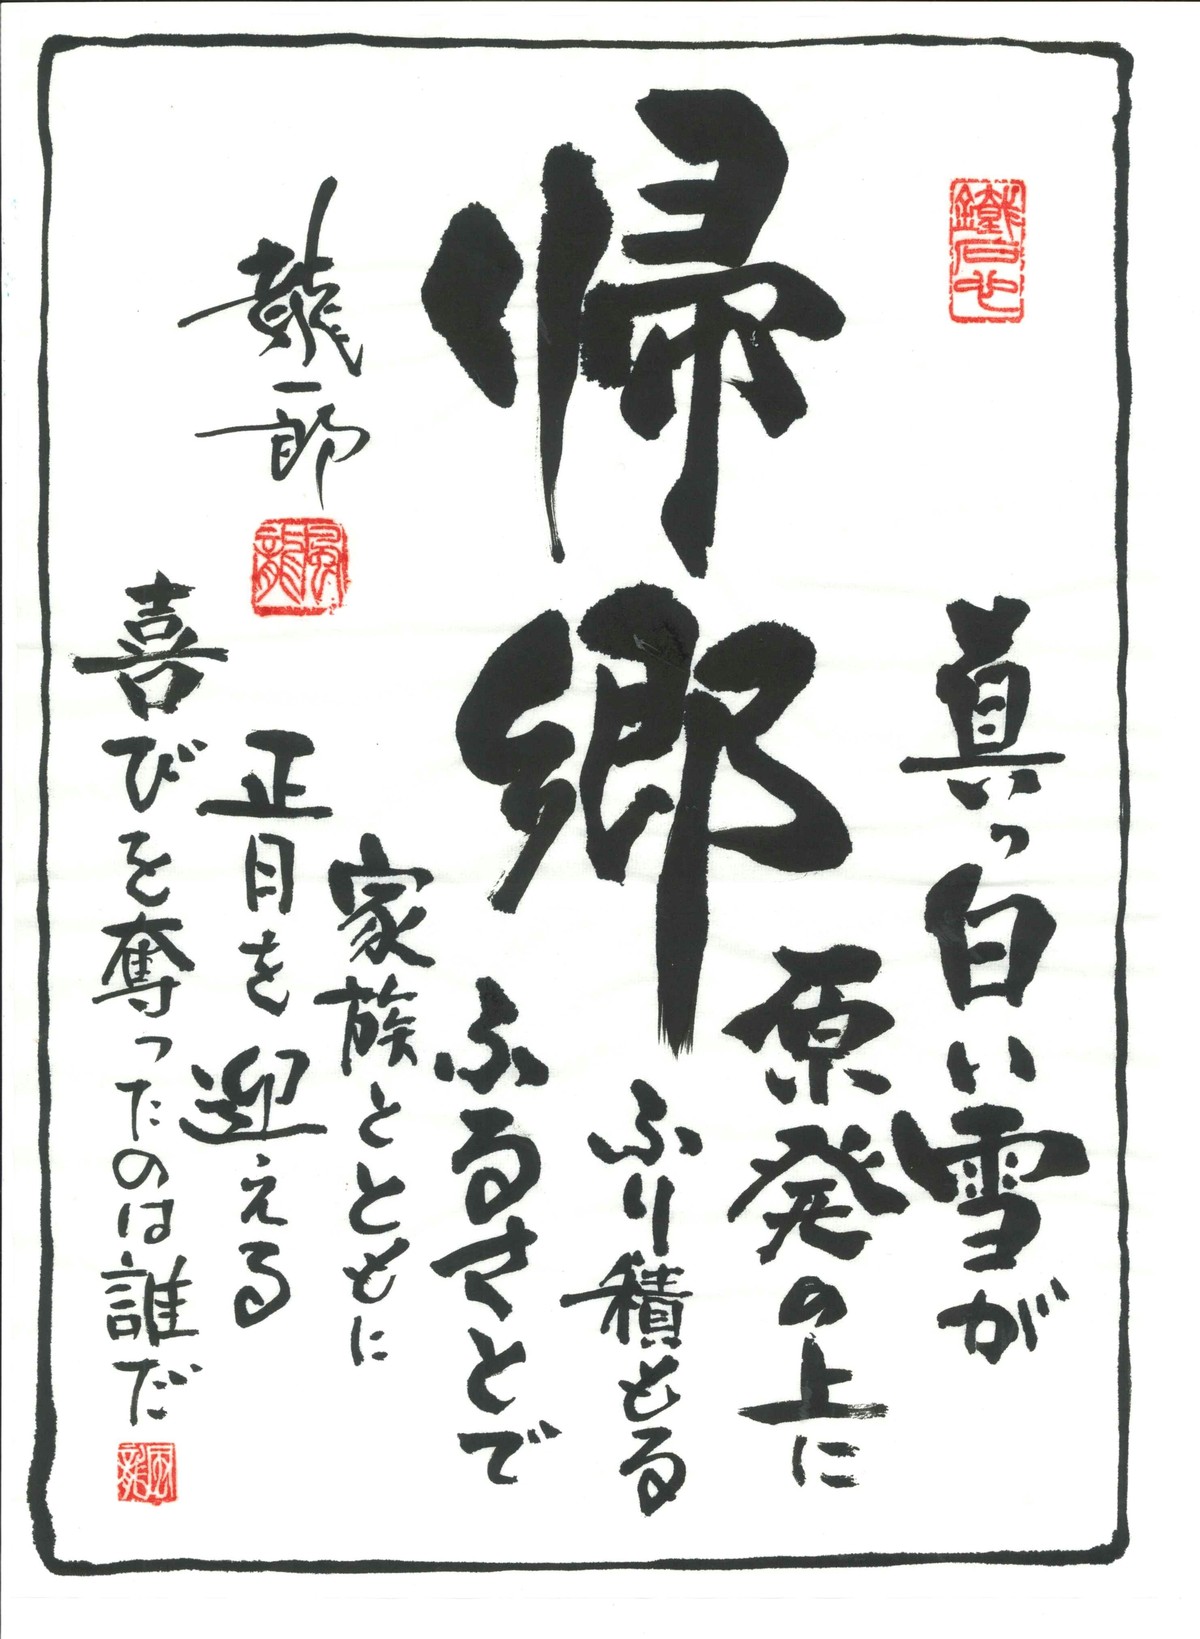 帰郷
真っ白い雪が
原発の上に
ふり積もる
ふるさとで
家族とともに
正月を迎える
喜びを奪ったのは誰だ
龍一郎
風龍
風龍